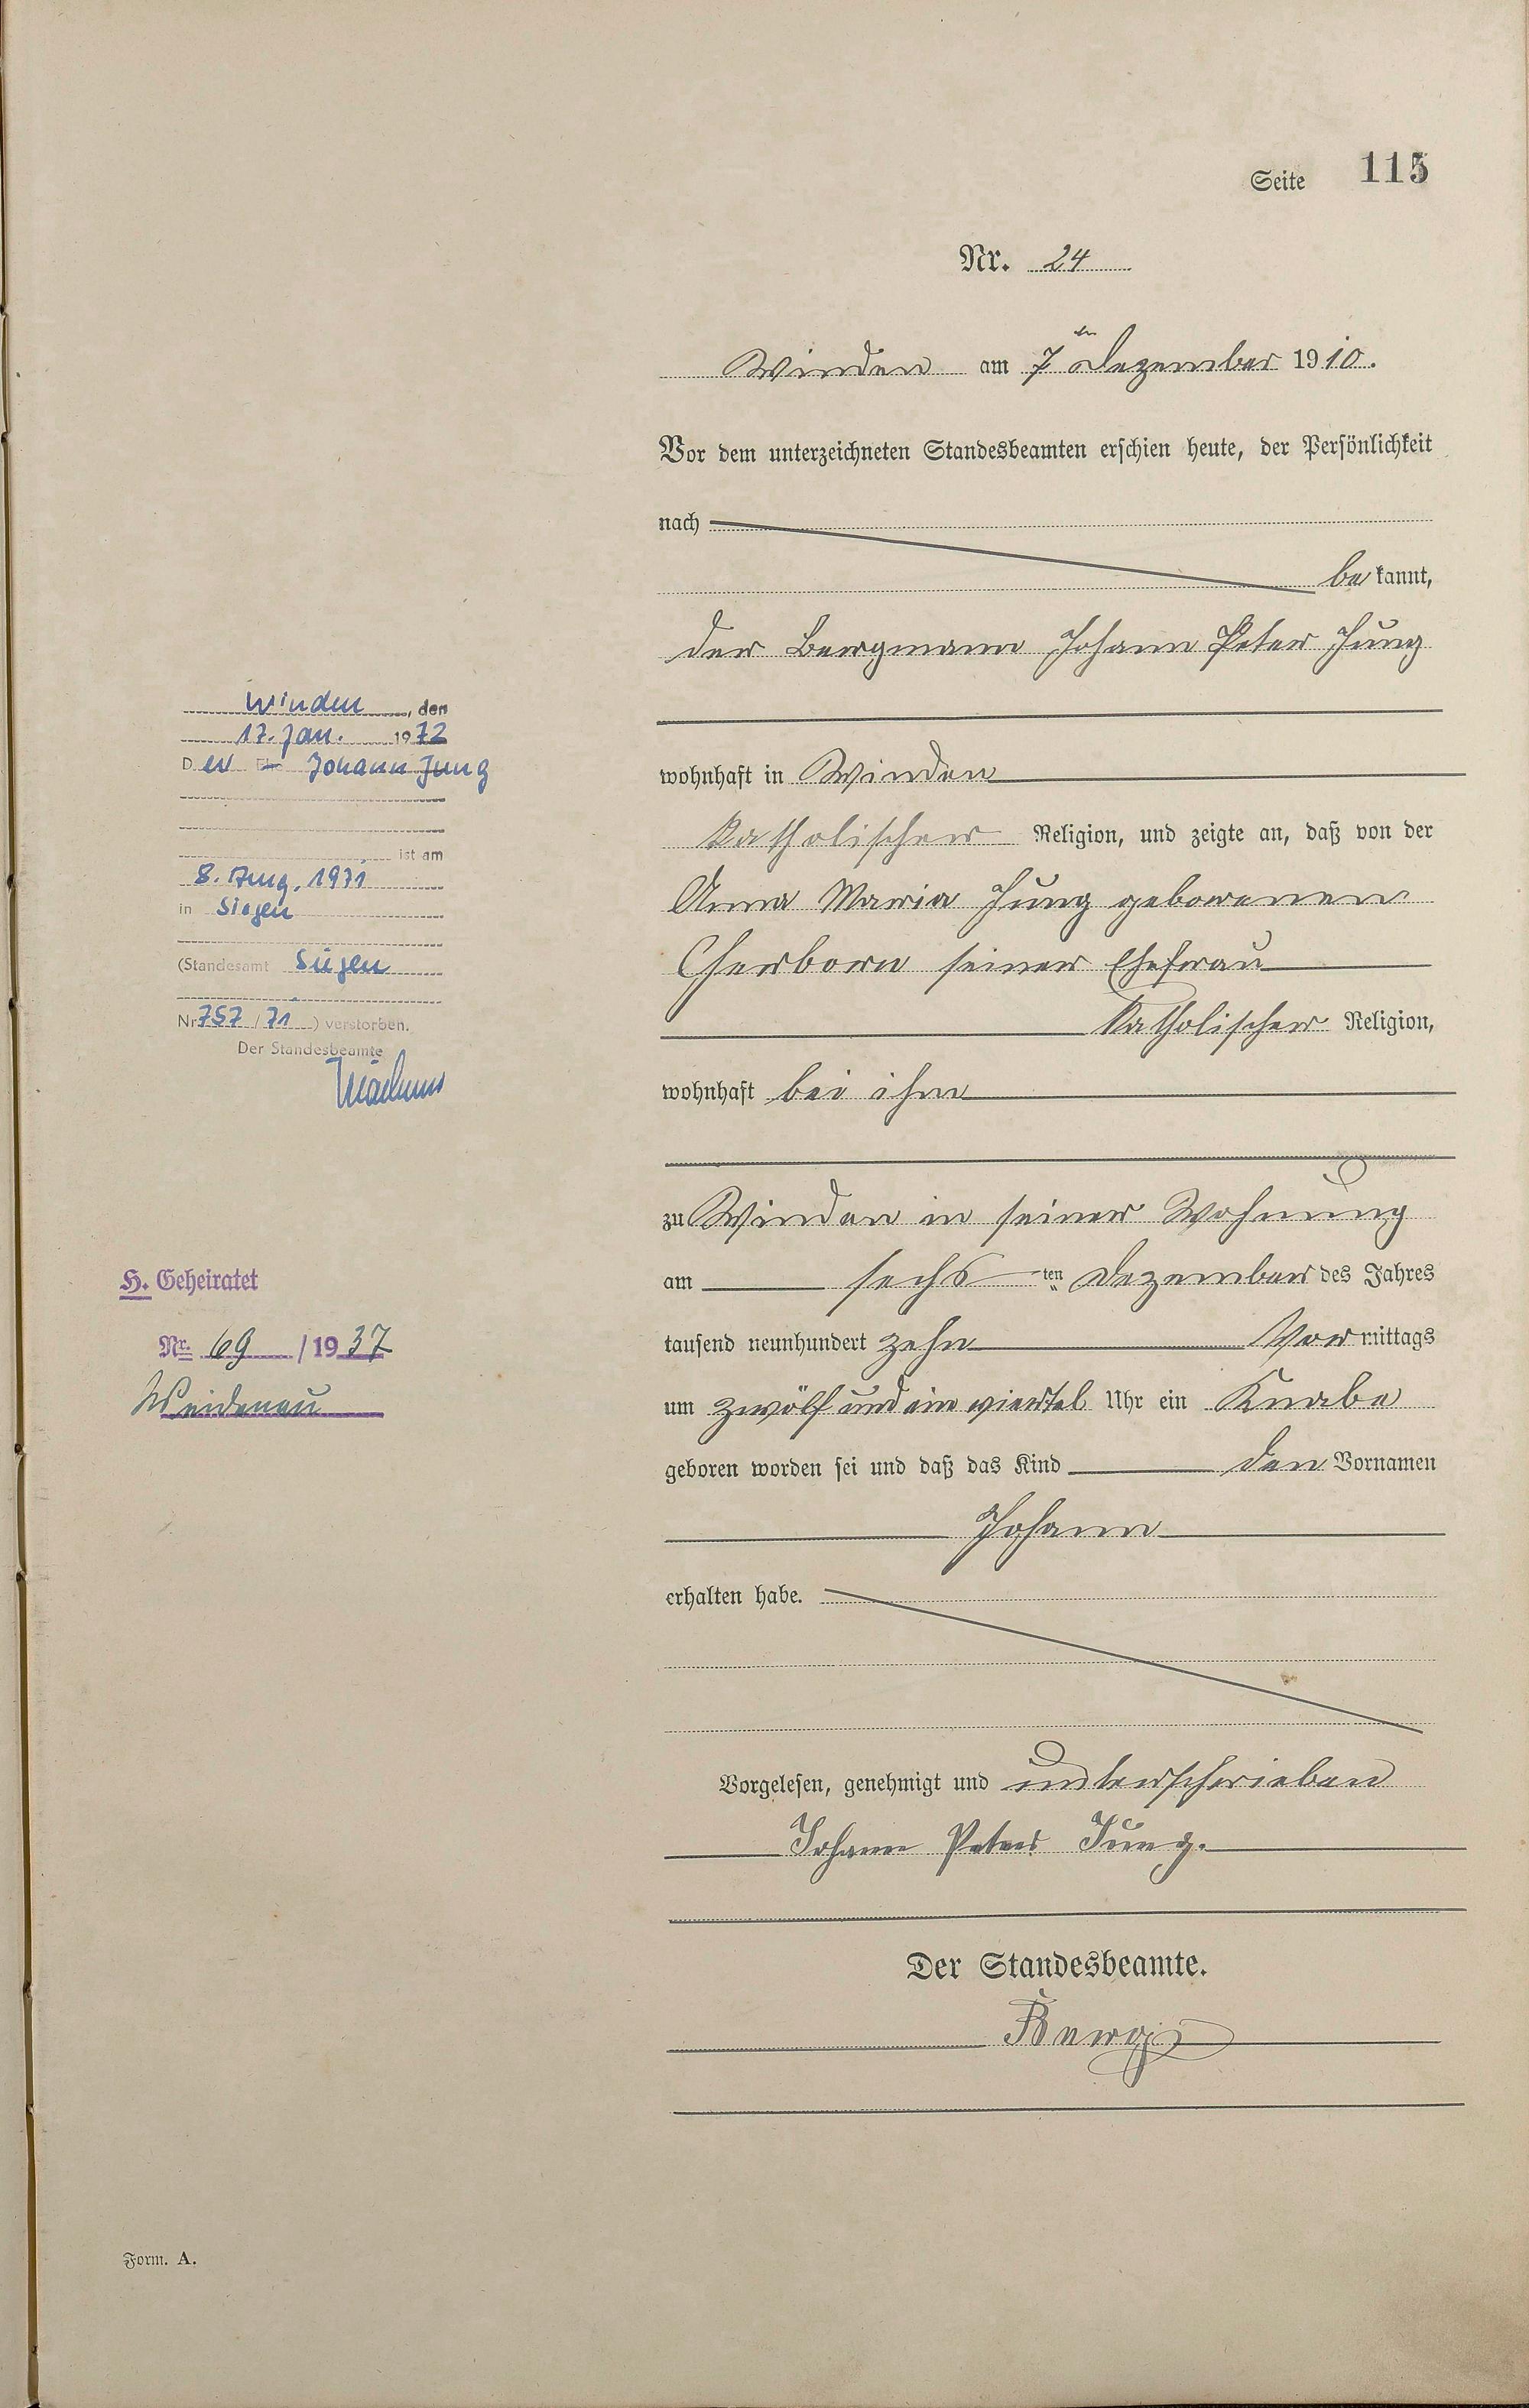 Seite 115
Nr. 24
Winden am 7ten Dezember 1910.
Vor dem unterzeichneten Standesbeamten erschien heute, der Persönlichkeit
nach
bekannt,
der Bergmann Johann Peter Jung
wohnhaft in Winden
katholischer Religion, und zeigte an, daß von der
Anna Maria Jung geborenen
seiner Ehefrau
katholischer Religion,
wohnhaft bei ihm
zu Winden in seiner Wohnung
am sechsten Dezember des Jahres
tausend neunhundert zehn Vormittags
um zwölf und ein viertel Uhr ein Knabe
geboren worden sei und daß das Kind den Vornamen
Johann
erhalten habe.
Vorgelesen, genehmigt und unterschrieben
Johann Peter Jung.
Der Standesbeamte.
Winden, den
17. Jan. 1972
Der Johann Jung
ist am
8. Aug. 1971
in Siegen
(Standesamt Siegen
Nr 757/71) verstorben.
Der Standesbeamte
H. Geheiratet
Nr. 69/1937
Weidenau
Form. A.